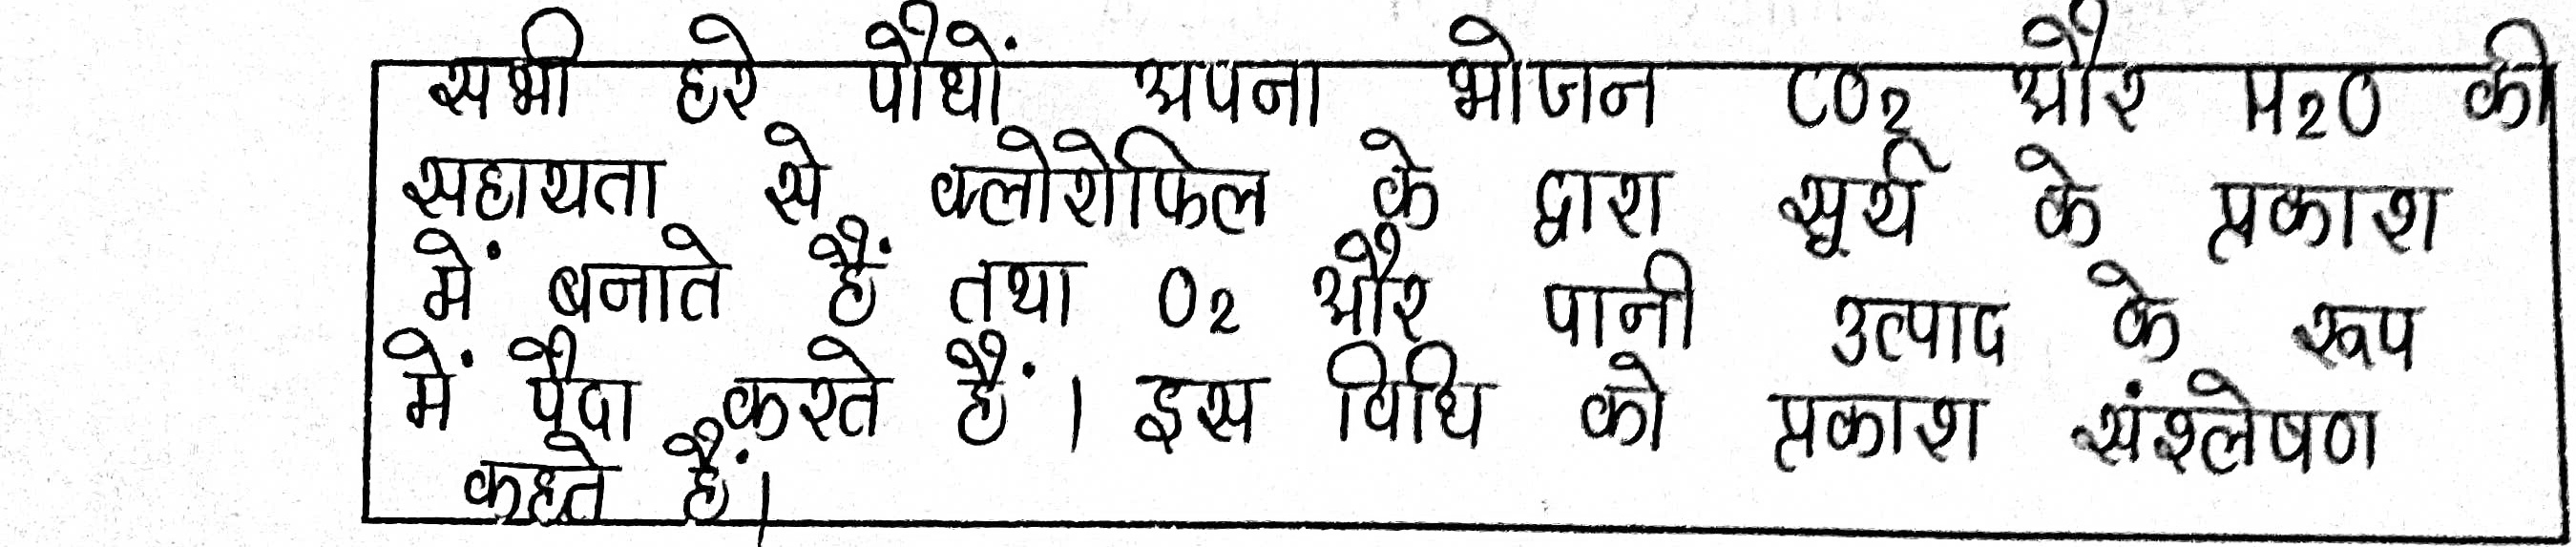 सभी हरे पौधों अपना भोजन CO₂ और H₂O की
सहायता से क्लोरोफिल के द्वारा सूर्य के प्रकाश
में बनाते हैं तथा O₂ और पानी उत्पाद के रूप
में पैदा करते हैं। इस विधि को प्रकाश संश्लेषण
कहते हैं।